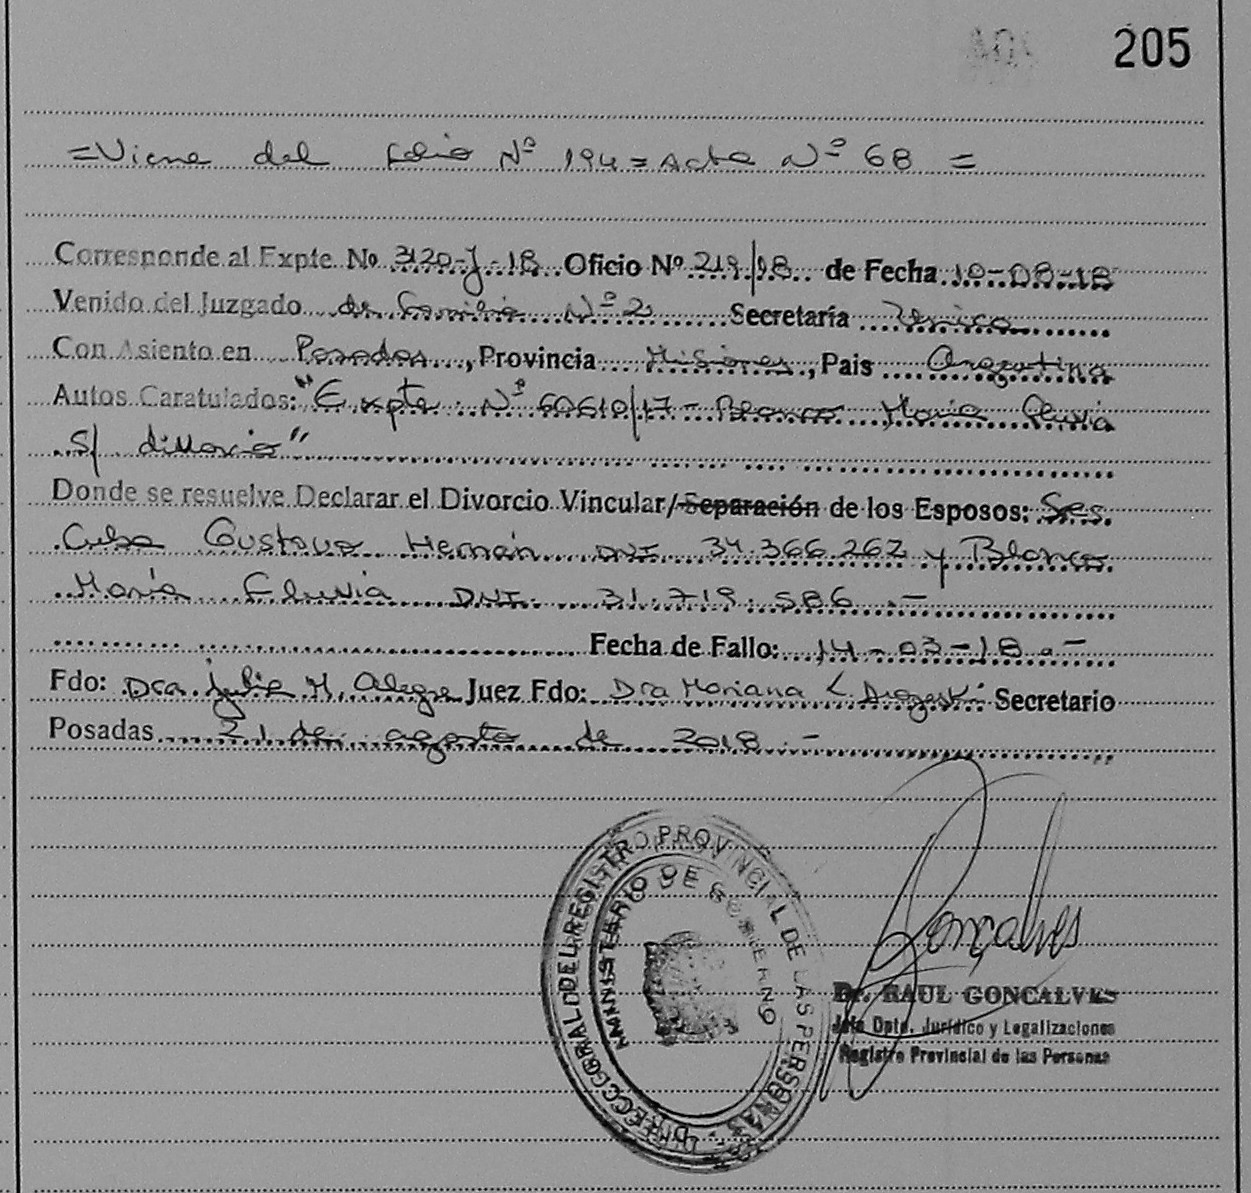 205
=Viene del folio Nº 194=Acta Nº 68=
Corresponde al Expte. Nº 3120-J-18 Oficio Nº 219/18 de Fecha 10-08-18
Venido del Juzgado de Familia Nº 2 Secretaría Unica
Con Asiento en Posadas, Provincia Misiones, Pais Argentina
Autos Caratulados: "Expte. Nº 60610/17 - Blanco María Fluvia
S/ divorcio"
Donde se resuelve Declarar el Divorcio Vincular/Separación de los Esposos: Sres.
Gustavo Hernán DNI 34.366.262 y Blanco
María Fluvia DNI. 31.719.586.-
Fecha de Fallo: 14-03-18.-
Fdo: Dra. Julie M. Alegre Juez Fdo: Dra Mariana L. Secretario
Posadas 21 de agosto de 2018.-
DEL REGISTRO PROVINCIAL DE LAS PERSONAS
MINISTERIO DE GOBIERNO
Goncalves
Dr. RAUL GONCALVES
Jefe Dpto. Jurídico y Legalizaciones
Registro Provincial de las Personas